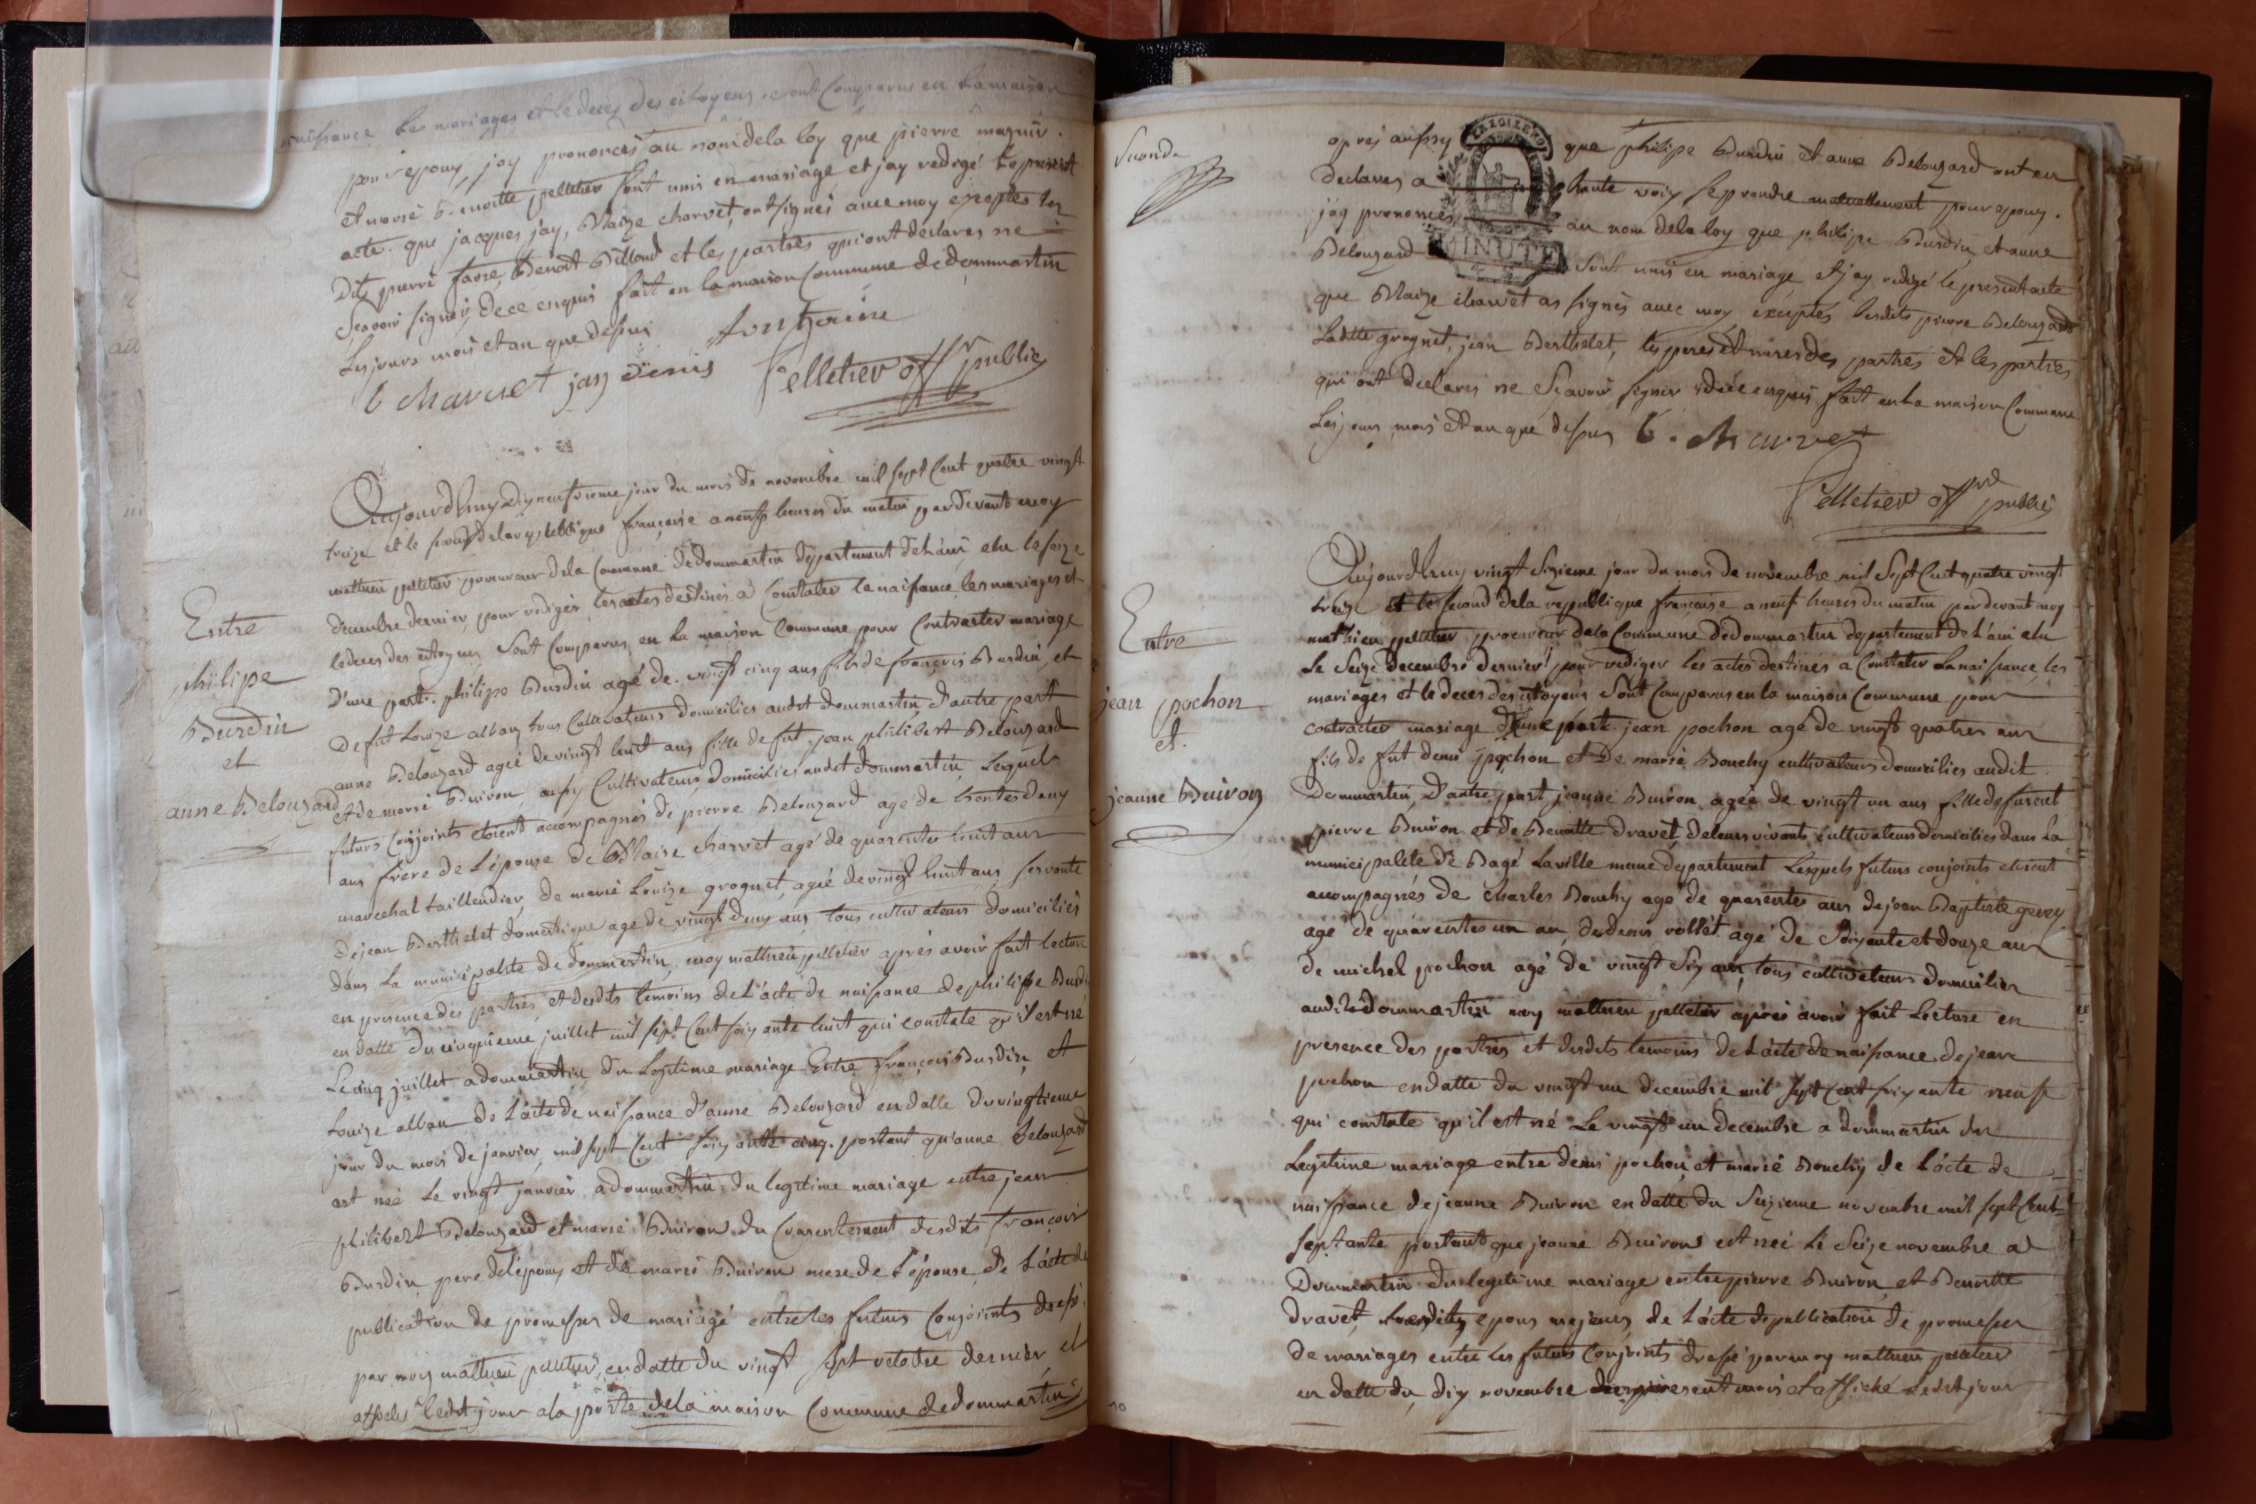 naissance les mariages et le deces des citoyens sont Comparus en la maison
pour epoux, jay prononcés au nom de la loy que pierre
et marie benoitte pelletier sont unis en mariage et jay redigé le present
acte. que jacques jay, Blaize charvet, ont signés avec moy exceptés les
Dits pierre favre, Benoit Billoud et les parties qui ont déclarés ne
Scavoir signer, de ce enquis fait en la maison Commune de dommartin
Les jours mois et an que dessus
b charvet jay denis Pelletier off public
Aujourd'huy dixneufvieme jour du mois de novembre mil sept Cent quatre vingt
treize et le second de la republique françoise a neuf heures du matin pardevant moy
mathieu pelletier procureur de la Commune de dommartin département de L'ain, elu le seize
decembre dernier, pour rediger les actes destinés a Constater la naissance, les mariages et
le deces des citoyens, Sont Comparus en La maison Commune pour Contracter mariage
Entre
philipe
Burdin
et
anne Belouzard
D'une part. philipe Burdin agé de vingt cinq ans fils de françois Burdin, et
De fut Louize alban tous Cultivateurs domicilies audit dommartin, D'autre part
anne Belouzard agée de vingt huit ans fille de fut jean philibert Belouzard
et de marie Buiron, aussy Cultivateurs domicilies audit dommartin, Lesquels
futurs Conjoints etoient acompagnés de pierre Belouzard age de trentes deux
ans frere de L'épouze de Blaise charvet agé de quarentes huit ans
marechal taillendier, de marie Louize grognet, agée de vingt huit ans, servante
de jean Berthelet domestique age de vingt deux ans, tous cultivateurs domiciliés
dans La municipalité de dommartin, moy mathieu pelletier aprés avoir fait lecture
en presence des parties, et desdits temoins de L'acte de naissance de philippe Burdin
en datte du cinquieme juillet mil sept Cent soixante huit qui constate qu'il est né
Le cinq juillet a dommartin, du Legitime mariage Entre François Burdin, et
Louize alban de L'acte de naissance d'anne Belouzard en datte du vingtieme
jour du mois de janvier, mil sept Cent soixante cinq. portant qu'anne Belouzard
est née Le vingt janvier a dommartin du legitime mariage entre jean
philibert Belouzard et marie Buiron du Consentement desdits François
Burdin, pere de l'epoux, et de marie Buiron mere de L'épouse, de L'acte de
publication de promesses de mariage entre les futurs Conjoints dressé
par moy mathieu pelletier, en datte du vingt sept octobre dernier, et
affichés ledit jour a la porte de la maison Commune de dommartin
Seconde
aprés aussy que philipe Burdin et anne Belouzard ont eu
Declarés a haute voix se prendre mutuellement pour epoux.
jay prononcés au nom de la loy que philipe Burdin, et anne
Belouzard sont unis en mariage et jay redigé le present acte
LA LOI
MINUTE
que Blaize charvet as signés avec moy exceptés lesdits pierre Belouzard
Ladite grognet, jean Berthelet, les peres et meres des parties et les parties
qui ont declarés ne Scavoir signer de ce enquis fait en La maison Commune
Les jours mois et an que dessus b. charvet
Pelletier off public
Aujourd'huy vingt Sixieme jour du mois de novembre mil Sept Cent quatre vingt
treize et le second de la republique françoise a neuf heures du matin par devant moy
mathieu pelletier procureur de la Commune de dommartin departement de L'ain elu
Le Seize decembre dernier pour rediger les actes destinés a Constater La naissance, les
mariages et le deces des citoyens Sont Comparus en la maison Commune pour
Entre
jean pochon
et
jeanne Buiron
contracter mariage D'une part. jean pochon agé de vingt quatres ans
fils de fut denis pochon et De marie Bouchy cultivateurs domicilies audit
Dommartin, D'autre part jeanne Buiron agée de vingt un ans fille de furent
pierre Buiron et de Benoitte dravet, de leurs vivants cultivateurs domiciliés dans La
municipalité de Bagé Laville meme departement Lesquels futurs conjoints etoient
acompagnés de charles Bouchy agé de quarentes ans de jean Baptiste gevey
agé de quarentes un an, de denis rollet agé de Soixante et douze ans
de michel pochon agé de vingt Six ans, tous cultivateurs domicilies
audit dommartin moy mathieu pelletier aprés avoir fait Lecture en
presence des parties et desdits temoins de L'acte de naissance de jean
pochon en datte du vingt un decembre mil sept cent soixante neuf
qui constate qu'il est né Le vingt un decembre a dommartin du
Legitime mariage entre denis pochon, et marie Bouchy de L'acte de
naissance de jeanne Buiron en datte du Seizieme novembre mil sept Cent
septante portant que jeanne Buiron est née Le Seize novembre a
Dommartin du legitime mariage entre pierre Buiron, et Benoitte
dravet, lesdits epoux majeurs, de L'acte de publication de promesses
de mariages entre les futurs Conjoints dressé par moy mathieu pelletier
en datte du dix novembre present mois et affiché Ledit jour